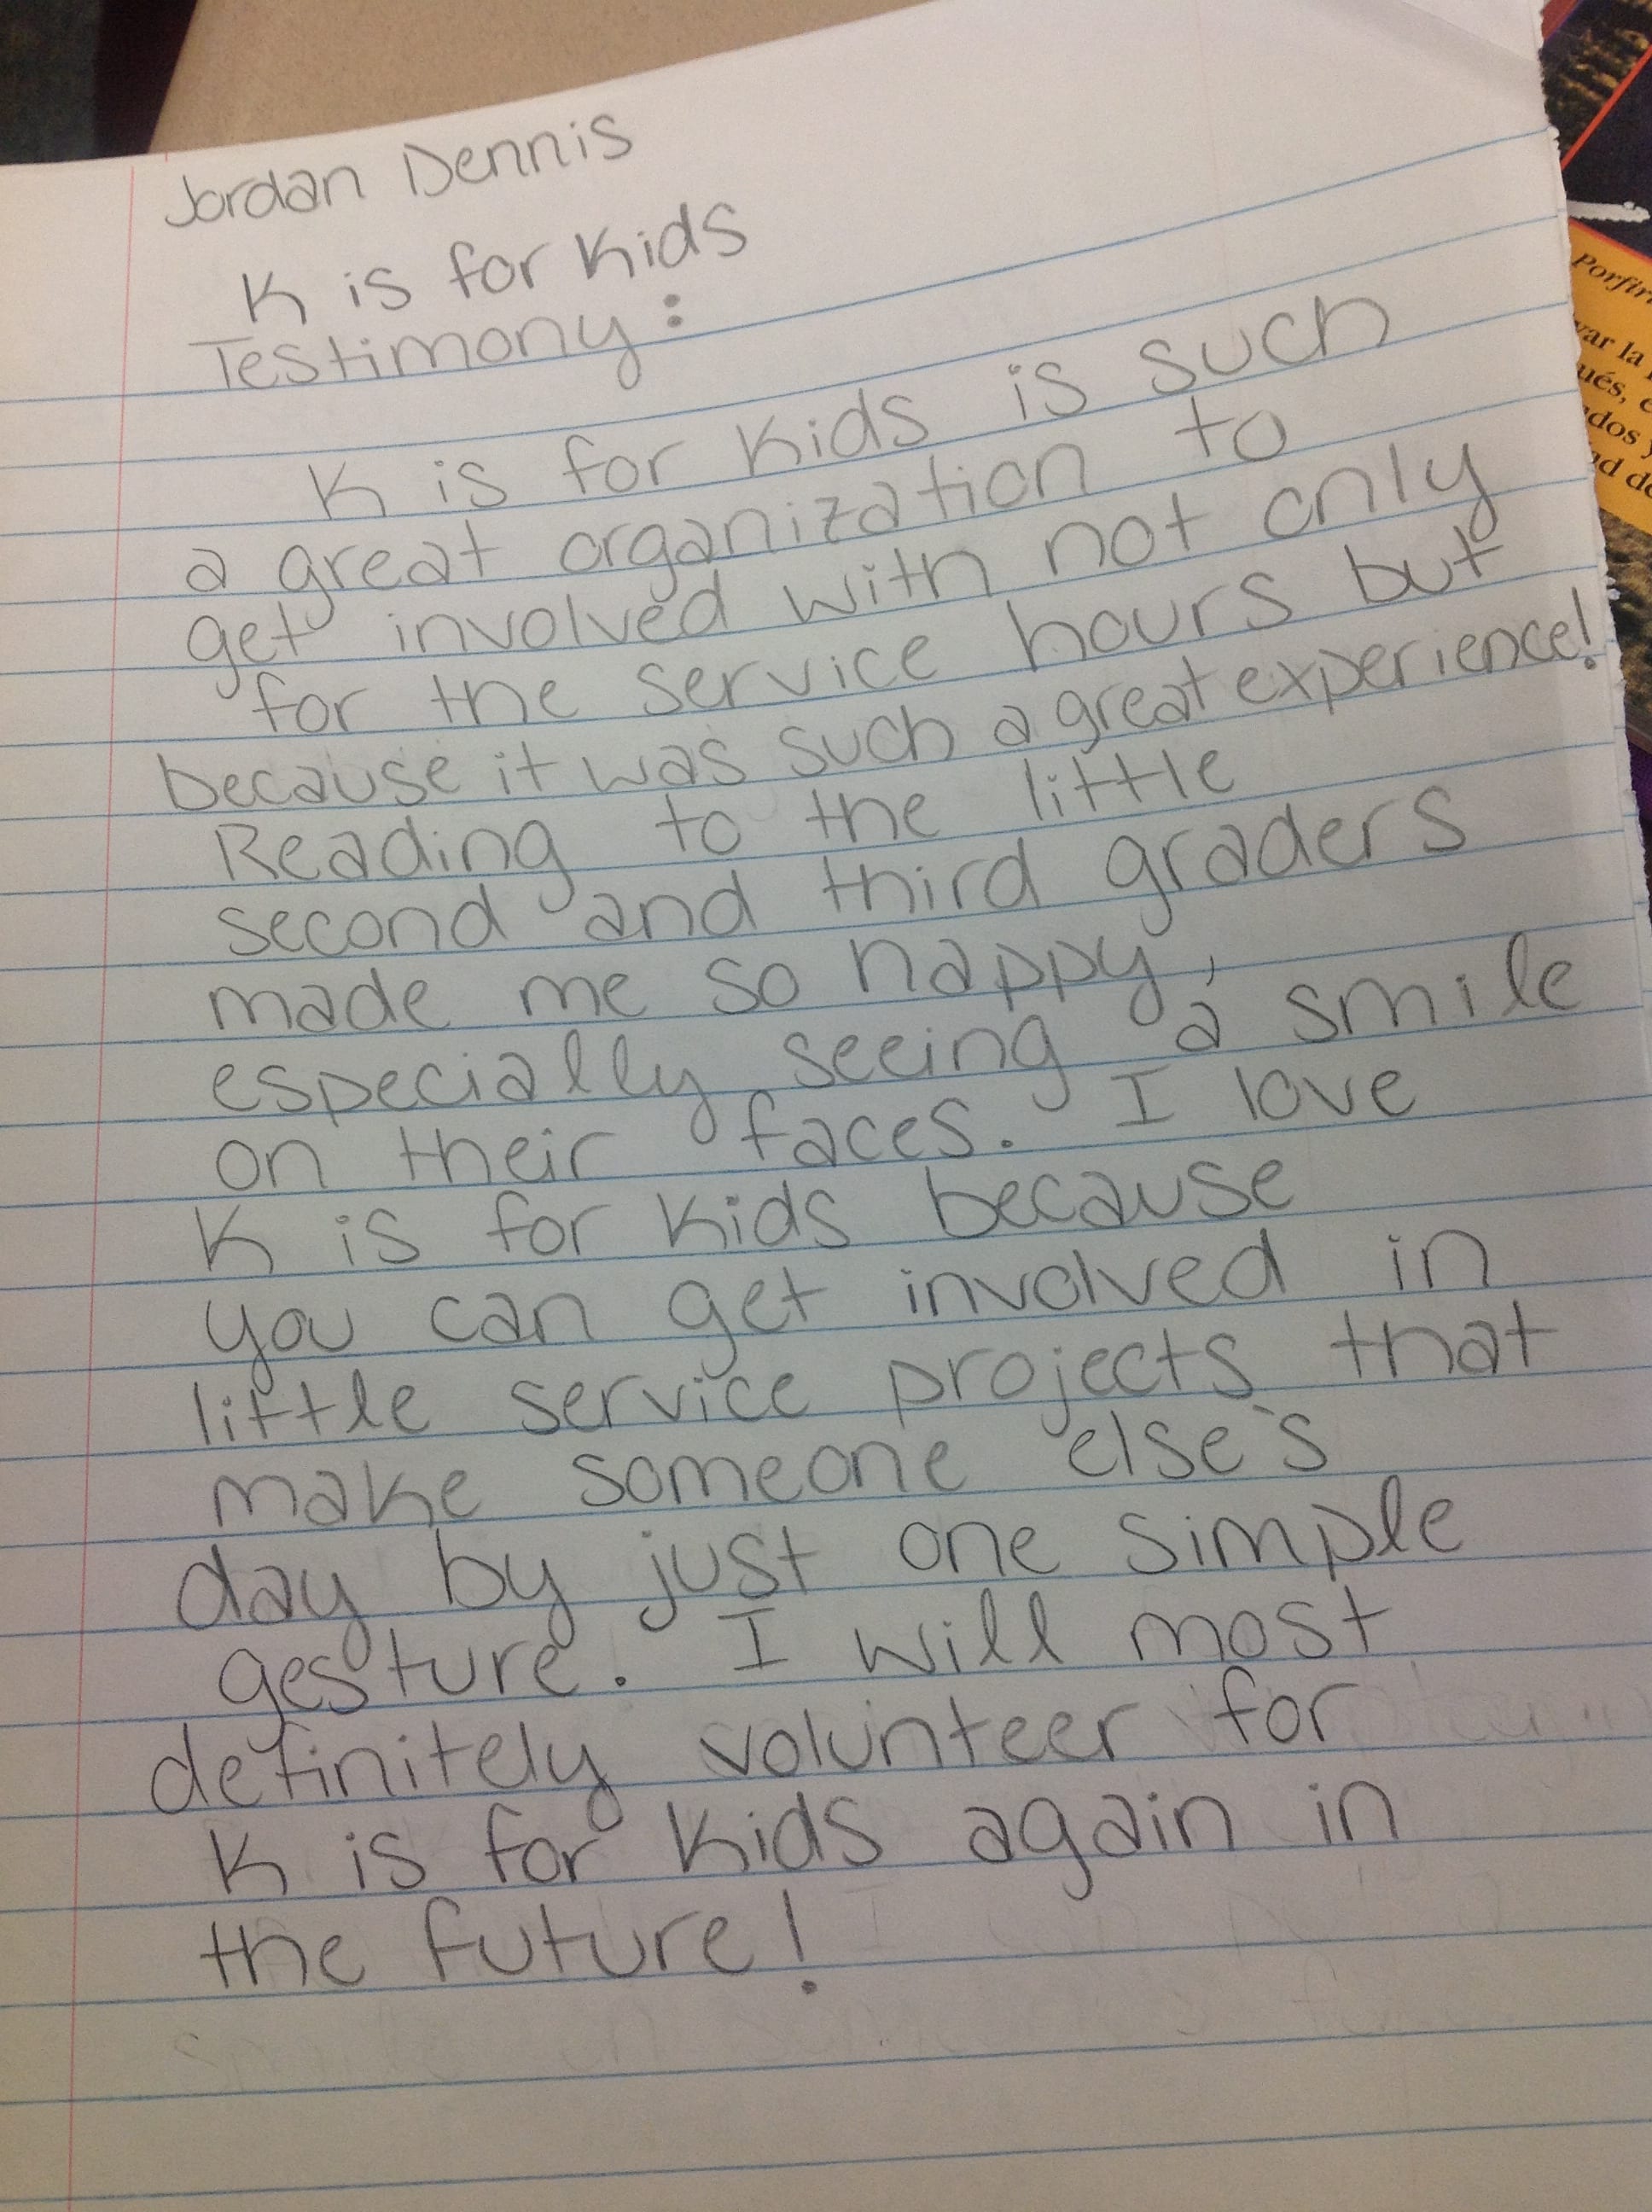 Jordan Dennis
K is for Kids
Testimony:
K is for Kids is such
a great organization to
get involved with not only
for the service hours but
because it was such a great experience!
Reading to the little
second and third graders
made me so happy,
especially seeing a smile
on their faces. I love
K is for Kids because
you can get involved in
little service projects that
make someone else's
day by just one simple
gesture. I will most
definitely volunteer for
K is for Kids again in
the future!
Porfir
var la
ués, e
dos y
ad de